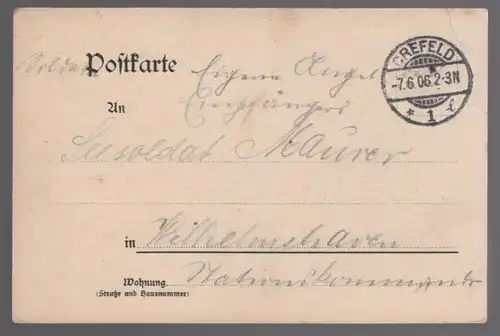 Soldat Postkarte Eigene Angel.
Empfängers
An
Seesoldat Maurer
in Wilhelmshaven
Wohnung Stationskommando
(Straße und Hausnummer)
CREFELD
-7.6.06.2-3N
* 1 l